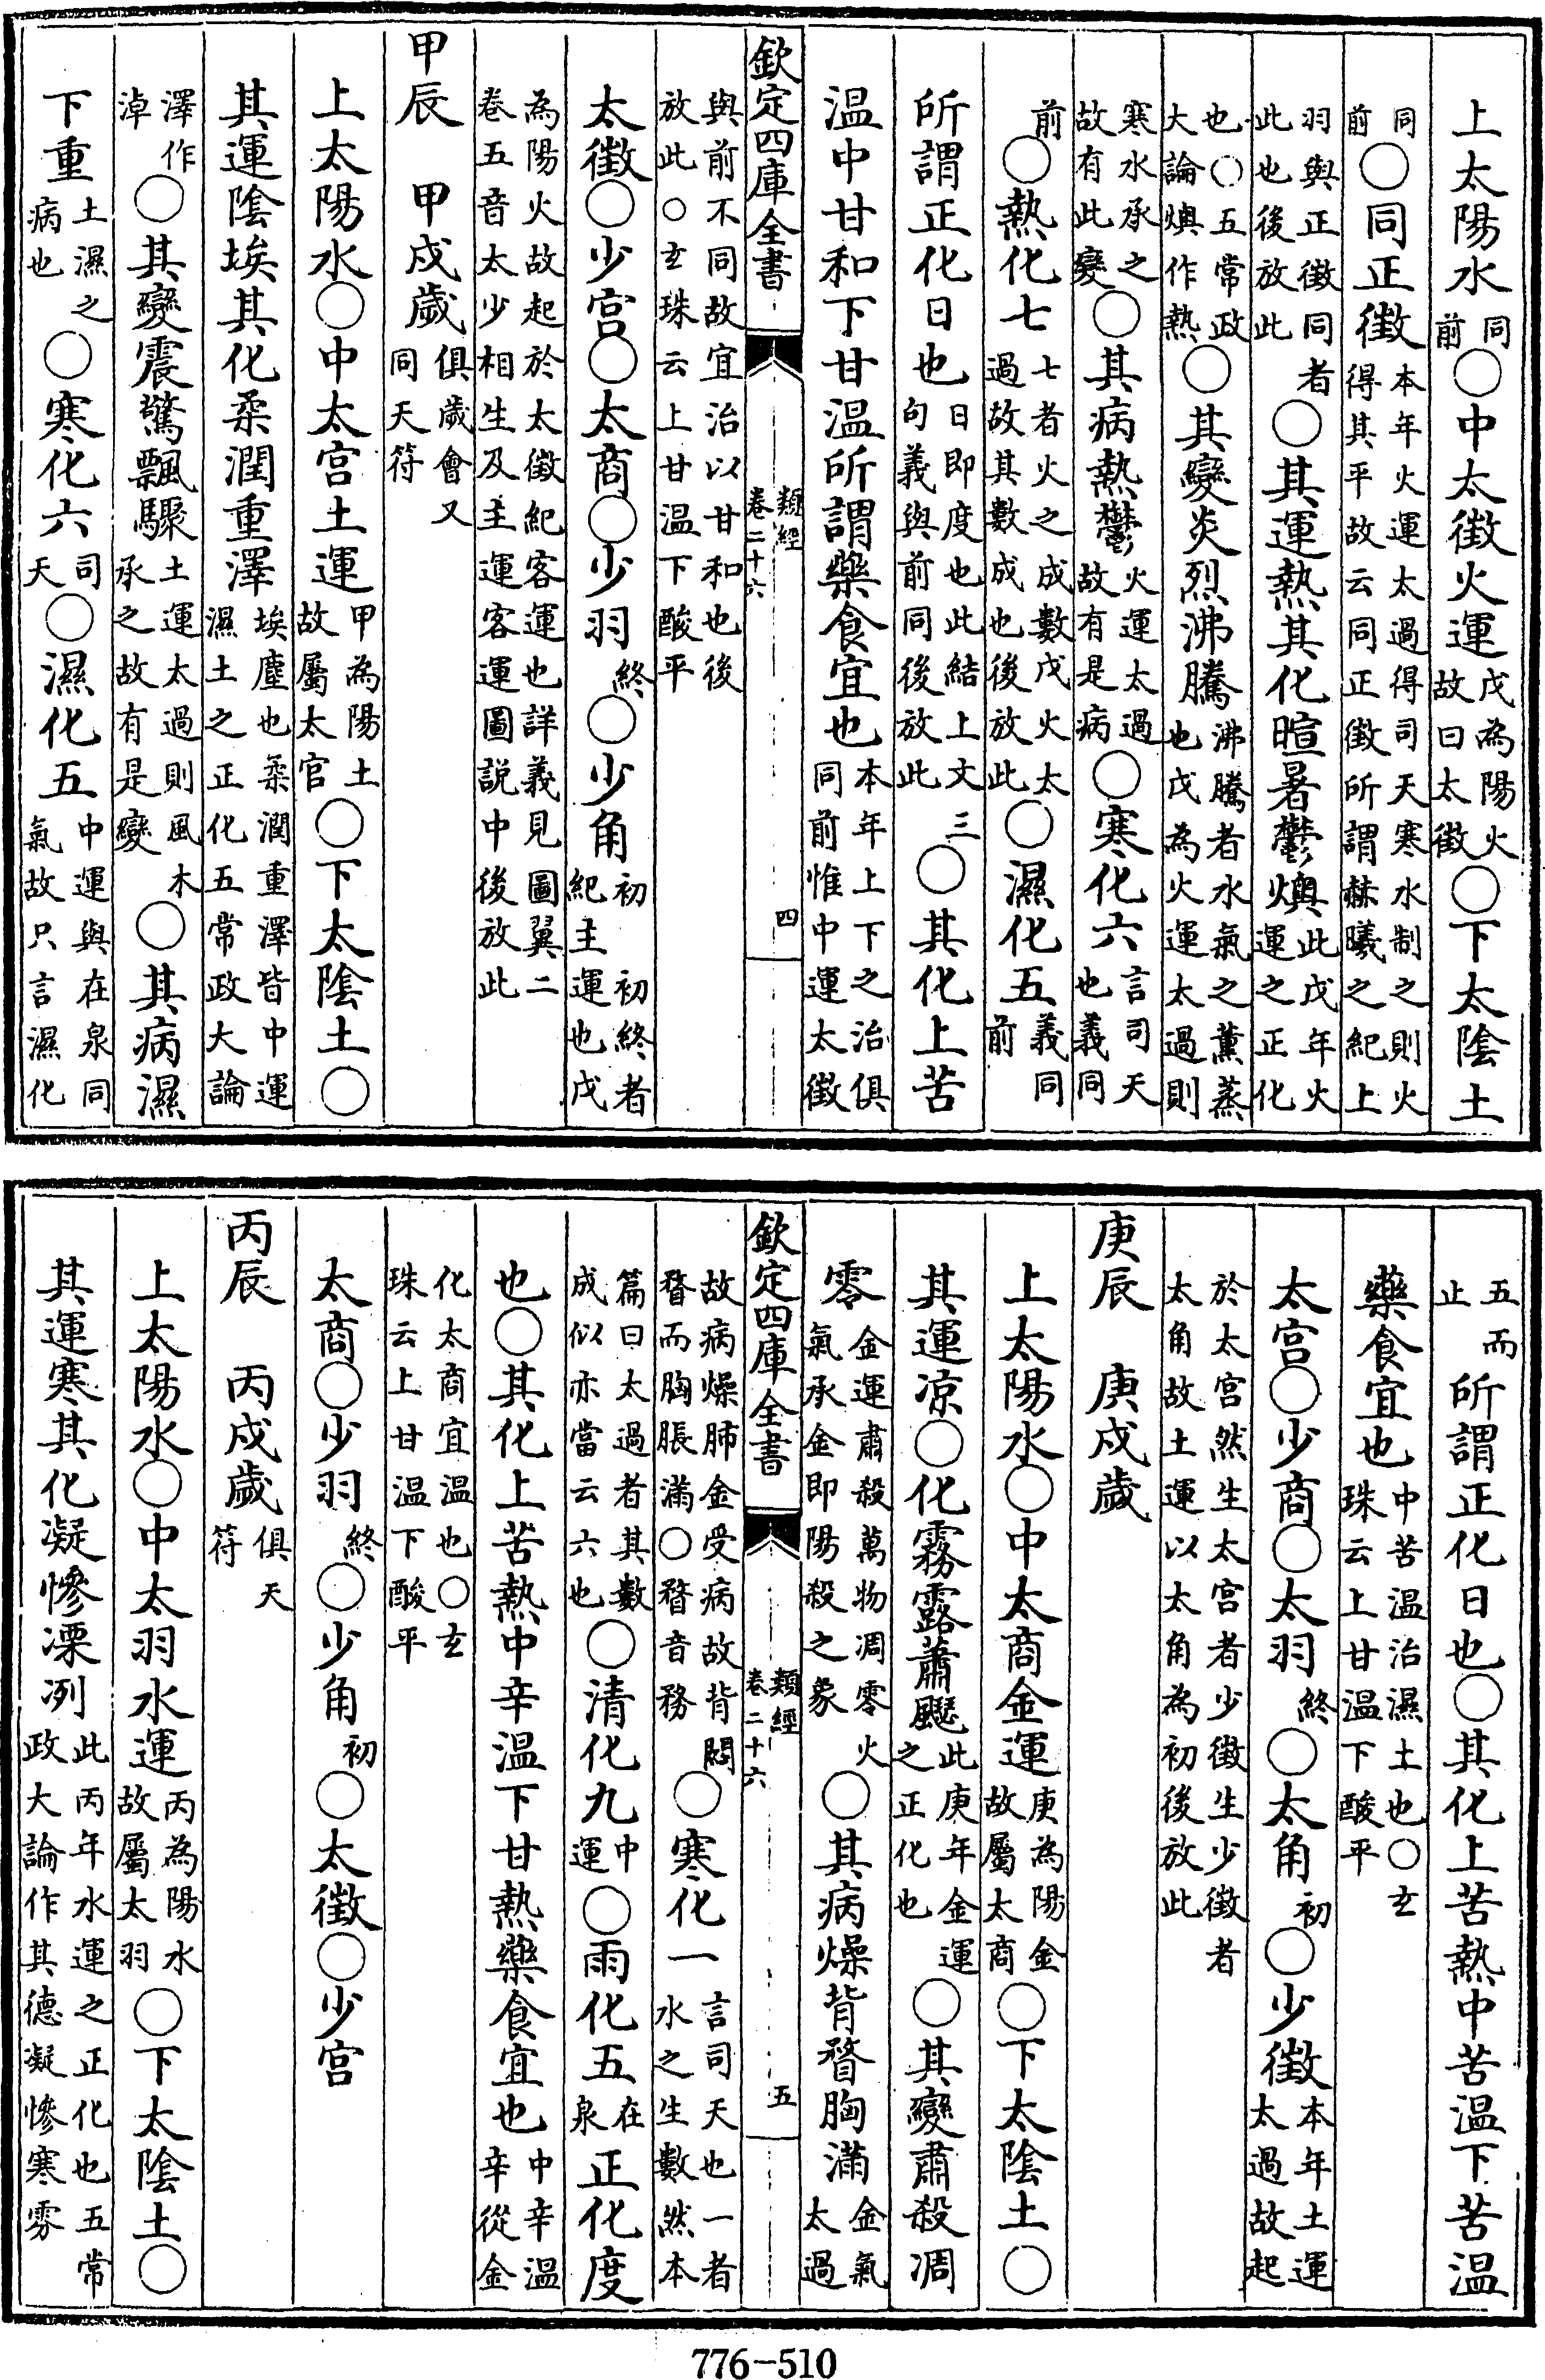 上太陽水同前○中太徵火運戊為陽火故曰太徵○下太陰土
同前○同正徵本年火運太過得司天寒水制之則火得其平故云同正徵所謂赫曦之紀上
羽與正徵同者此也後放此○其運熱其化暄暑鬱燠此戊年火運之正化
也○五常政大論燠作熱○其變炎烈沸騰沸騰者水氣之薰蒸也戊為火運太過則
寒水承之故有此變○其病熱鬱火運太過故有是病○寒化六言司天也義同
前○熱化七七者火之成數戊火太過故其數成也後放此○濕化五義同前
所謂正化日也日即度也此結上文三句義與前同後放此○其化上苦
温中甘和下甘温所謂藥食宜也本年上下之治俱同前惟中運太徵
欽定四庫全書 類經 卷二十六 四
與前不同故宜治以甘和也後放此○玄珠云上甘温下酸平
太徵○少宫○太商○少羽終○少角初初終者紀主運也戊
為陽火故起於太徵紀客運也詳義見圖翼二卷五音太少相生及主運客運圖説中後放此
甲辰 甲戍歲俱歲會又同天符
上太陽水○中太宫土運甲為陽土故屬太官○下太陰土○
其運陰埃其化柔潤重澤埃塵也柔潤重澤皆中運濕土之正化五常政大論
澤作淖○其變震驚飄驟土運太過則風木承之故有是變○其病濕
下重土濕之病也○寒化六司天○濕化五中運與在泉同氣故只言濕化
五而止所謂正化日也○其化上苦熱中苦温下苦温
藥食宜也中苦温治濕土也○玄珠云上甘温下酸平
太宫○少商○太羽終○太角初○少徵本年土運太過故起
於太宫然生太宫者少徵生少徵者太角故土運以太角為初後放此
庚辰 庚戍歲
上太陽水○中太商金運庚為陽金故屬太商○下太陰土○
其運凉○化霧露蕭飋此庚年金運之正化也○其變肅殺凋
零金運肅殺萬物凋零火氣承金即陽殺之象○其病燥背瞀胸滿金氣太過
欽定四庫全書 類經 卷二十六 五
故病燥肺金受病故背悶瞀而胸脹滿○瞀音務○寒化一言司天也一者水之生數然本
篇曰太過者其數成似亦當云六也○清化九中運○雨化五在泉正化度
也○其化上苦熱中辛温下甘熱藥食宜也中辛温辛從金
化太商宜温也○玄珠云上甘温下酸平
太商○少羽終○少角初○太徵○少宫
丙辰 丙戍歲俱天符
上太陽水○中太羽水運丙為陽水故屬太羽○下太陰土○
其運寒其化凝慘凓冽此丙年水運之正化也五常政大論作其德凝慘寒雰
776-510